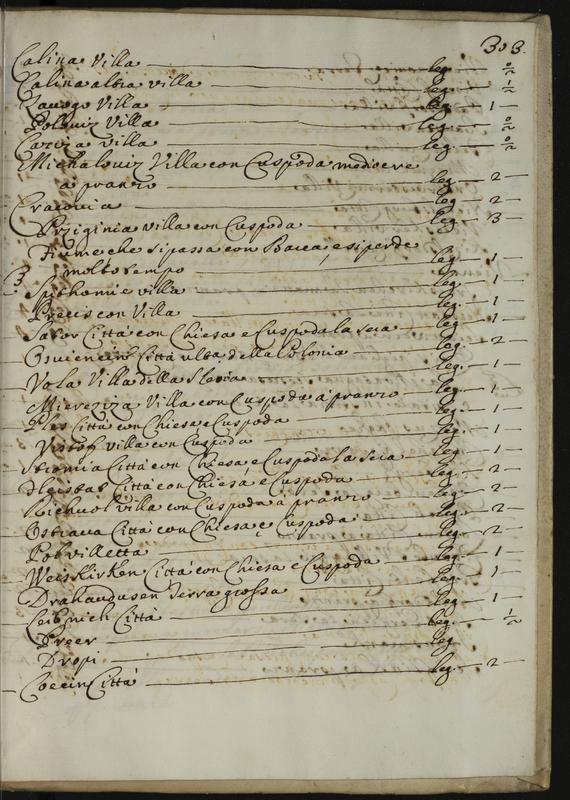 303.
Calina Villa leg. 0/2
Calina alta villa leg. 1/2
Zauogo Villa leg. 1
Polouiz Villa leg. 0/2
Cariza villa leg. 0/2
Michalouiz Villa con Cuspoda mediocre
a pranzo leg. 2
Cracouia leg. 2
Prziginia villa con Cuspoda leg. 3
Fiume che si passa con Barca, e si perde
molto tempo leg. 1
Spithomie villa leg. 1
Preus con Villa leg. 1
Sator Città con Chiesa e Cuspoda la sera leg. 1
Osuiencin Città ulta della Polonia leg. 2
Vola Villa della Slesia leg. 1
Miereziza Villa con Cuspoda à pranzo leg. 1
Ples Città con Chiesa e Cuspoda leg. 1
Villa con Cuspoda leg. 1
Città con Chiesa e Cuspoda la sera leg. 1
Città con Chiesa e Cuspoda leg. 2
villa con Cuspoda à pranzo leg. 2
Ostraua Città con Chiesa e Cuspoda leg. 2
villetta leg. 2
Weiskirken Città con Chiesa e Cuspoda leg. 1
Drahaudusen Terra grossa leg. 1
Leibnich Città leg. 1
Preer leg. 1/2
Dropi leg.
Cocein Città leg. 2